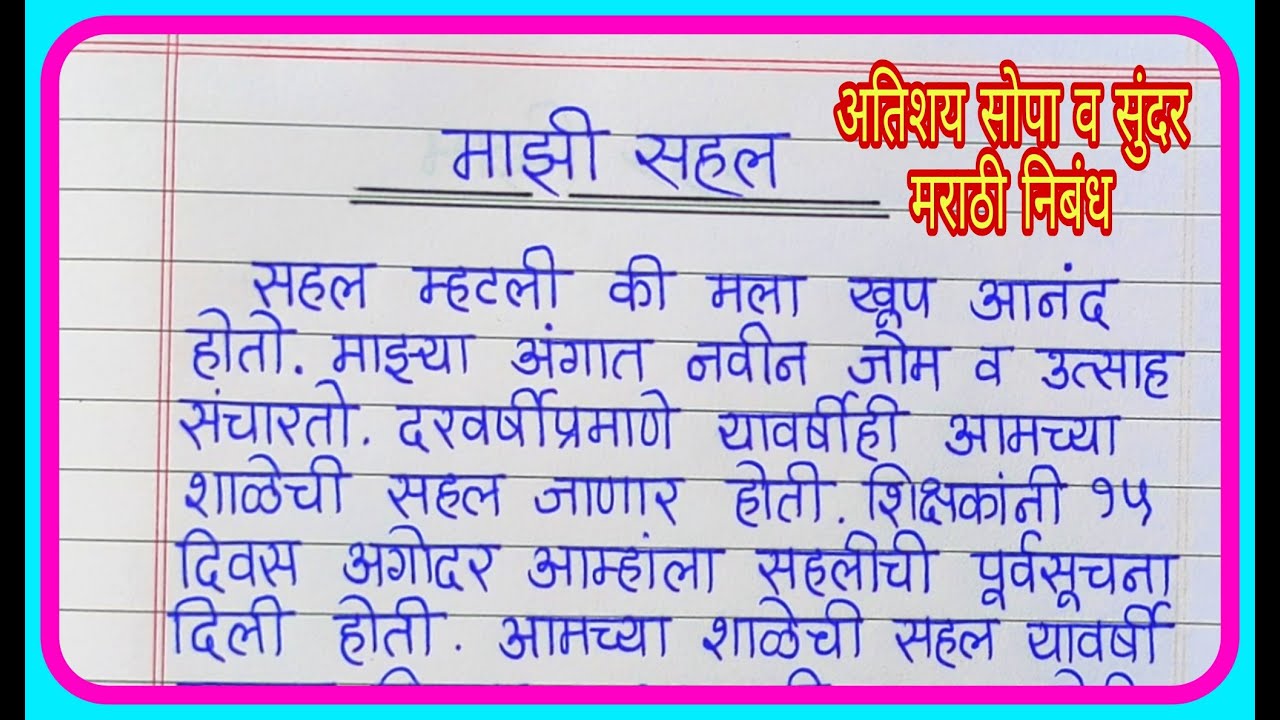 अतिशय सोपा व सुंदर
मराठी निबंध
माझी सहल
सहल म्हटली की मला खूप आनंद
होतो. माझ्या अंगात नवीन जोम व उत्साह
संचारतो. दरवर्षीप्रमाणे यावर्षीही आमच्या
शाळेची सहल जाणार होती. शिक्षकांनी १५
दिवस अगोदर आम्हांला सहलीची पूर्वसूचना
दिली होती. आमच्या शाळेची सहल यावर्षी